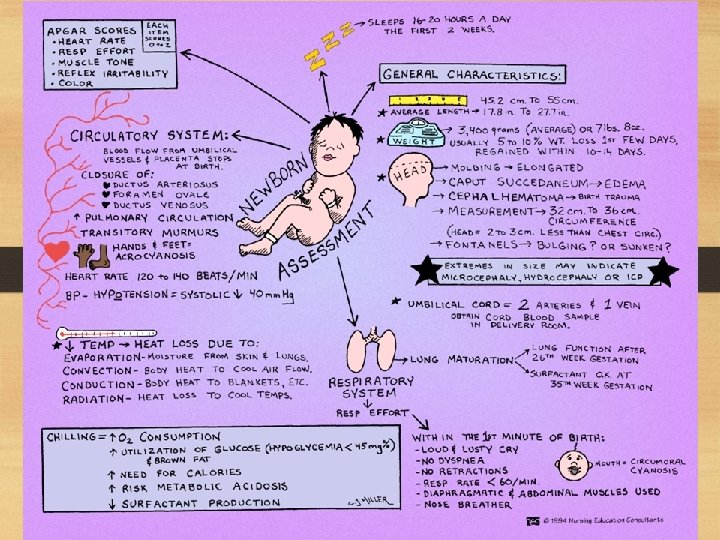 APGAR SCORES
• HEART RATE
• RESP EFFORT
• MUSCLE TONE
• REFLEX IRRITABILITY
• COLOR
EACH
ITEM
SCORES
0 OR 2
ZZZZ → SLEEPS 16-20 HOURS A DAY
THE FIRST 2 WEEKS.
GENERAL CHARACTERISTICS:
45.2 cm. TO 55 cm.
★ AVERAGE LENGTH → 17.8 in. TO 27.7 in.
★ WEIGHT → 3,400 grams (AVERAGE) OR 7 lbs. 8 oz.
USUALLY 5 TO 10% WT. LOSS 1ST FEW DAYS,
REGAINED WITHIN 10-14 DAYS.
★ HEAD → MOLDING → ELONGATED
→ CAPUT SUCCEDANEUM → EDEMA
→ CEPHALHEMATOMA → BIRTH TRAUMA
→ MEASUREMENT → 32 CM. TO 36 CM.
CIRCUMFERENCE
(HEAD = 2 TO 3 CM. LESS THAN CHEST CIRC.)
→ FONTANELS → BULGING? OR SUNKEN?
EXTREMES IN SIZE MAY INDICATE
MICROCEPHALY, HYDROCEPHALY OR ICP
★ UMBILICAL CORD = 2 ARTERIES & 1 VEIN
OBTAIN CORD BLOOD SAMPLE
IN DELIVERY ROOM.
NEWBORN
ASSESSMENT
CIRCULATORY SYSTEM:
BLOOD FLOW FROM UMBILICAL
VESSELS & PLACENTA STOPS
AT BIRTH.
CLOSURE OF:
♥ DUCTUS ARTERIOSUS
♥ FORAMEN OVALE
♥ DUCTUS VENOSUS
↑ PULMONARY CIRCULATION
TRANSITORY MURMURS
HANDS & FEET =
ACROCYANOSIS
HEART RATE 120 TO 140 BEATS/MIN
BP - HYPOTENSION = SYSTOLIC ↓ 40 mm Hg
★ ↓ TEMP → HEAT LOSS DUE TO:
EVAPORATION - MOISTURE FROM SKIN & LUNGS.
CONVECTION - BODY HEAT TO COOL AIR FLOW.
CONDUCTION - BODY HEAT TO BLANKETS, ETC.
RADIATION - HEAT LOSS TO COOL TEMPS.
RESPIRATORY
SYSTEM
↓
RESP EFFORT
→ LUNG MATURATION
LUNG FUNCTION AFTER
26TH WEEK GESTATION
SURFACTANT O.K. AT
35TH WEEK GESTATION
CHILLING = ↑ O2 CONSUMPTION
↑ UTILIZATION OF GLUCOSE (HYPOGLYCEMIA < 45 mg%)
& BROWN FAT
↑ NEED FOR CALORIES
↑ RISK METABOLIC ACIDOSIS
↓ SURFACTANT PRODUCTION
CJ MILLER
WITH IN THE 1ST MINUTE OF BIRTH:
- LOUD & LUSTY CRY
- NO DYSPNEA
- NO RETRACTIONS
- RESP RATE < 60/MIN.
- DIAPHRAGMATIC & ABDOMINAL MUSCLES USED
- NOSE BREATHER
MOUTH = CIRCUMORAL
CYANOSIS
© 1994 Nursing Education Consultants